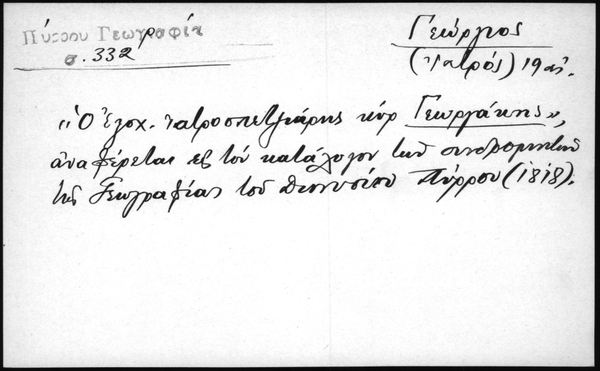 Πύρρου Γεωγραφία
σ. 332
Γεώργιος
(ἰατρός) 19 αἰ.
«Ὁ ἐξοχ. ἰατροσπετζιάρης κὺρ Γεωργάκης»,
ἀναφέρεται εἰς τὸν κατάλογον τῶν συνδρομητῶν
τῆς Γεωγραφίας τοῦ Διονυσίου Πύρρου (1818).